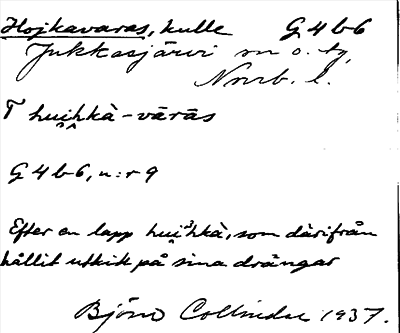 Hojkavaras, kulle G 4 b 6
Jukkasjärvi sn o. tg,
Norrb. l.
T huiḫkà-vārās
G 4 b 6, n:r 9
Efter en lapp huiᵌhkà, som därifrån
hållit utkik på sina drängar
Björn Collinder 1937.